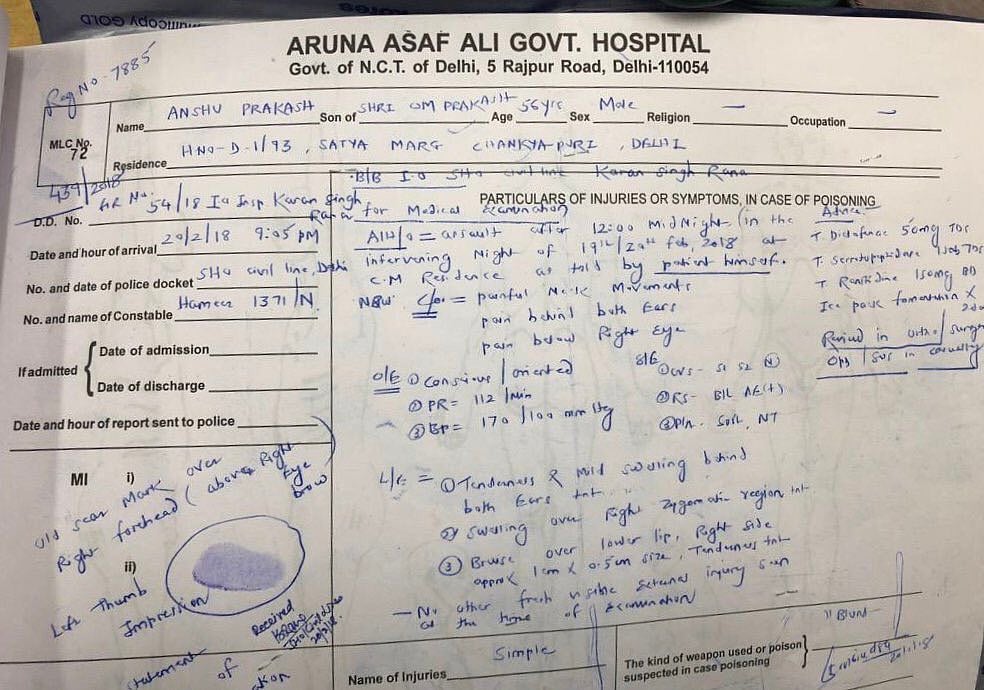 ARUNA ASAF ALI GOVT. HOSPITAL
Govt. of N.C.T. of Delhi, 5 Rajpur Road, Delhi-110054
Reg No - 7885
MLC No. 72
439/2018
Name ANSHU PRAKASH Son of SHRI OM PRAKASH Age 56 yrs Sex Male Religion — Occupation —
Residence H NO-D-1/93, SATYA MARG CHANKYA PURI, DELHI
B/B I.O SHO civil line Karan Singh Rana
for Medical Examination
D.D. No. 54/18 Io Insp. Karan Singh Rana
Date and hour of arrival 20/2/18 9:05 PM
No. and date of police docket SHO civil line, Delhi
No. and name of Constable 1371/N
If admitted
Date of admission
Date of discharge
Date and hour of report sent to police
MI i) Old scar Mark over
Right forehead (above Right
Eye brow
ii)
Left Thumb
Impression
Received
20/2/18.
statement of
PARTICULARS OF INJURIES OR SYMPTOMS, IN CASE OF POISONING
A/H/o = assault after 12:00 MidNight (in the
intervening Night of 19th/20th Feb, 2018 at
C.M Residence as told by patient himself.
C/o = painful Neck Movements
pain behind both Ears
pain below Right Eye
O/E ① Conscious / oriented
② PR = 112 /min
③ BP = 170/100 mm Hg
S/E ① CVS - S1 S2 (N)
② RS - B/L AE(+)
③ P/A - Soft, NT
L/E = ① Tenderness & Mild swelling behind
both Ears tnt
② Swelling over Right Zygomatic region tnt
③ Bruise over lower lip, Right side
approx 1cm x 0.5cm size, Tenderness tnt
— No other fresh visible External injury seen
at the time of Examination
Advice
T. Diclofenac 50mg TDS
T. Serratiopeptidase TDS
T. Ranitidine 150mg BD
Ice pack fomentation x
Review in Ortho / surgery
OPD / SOS in casualty
Name of Injuries Simple
The kind of weapon used or poison
suspected in case poisoning
"Blunt